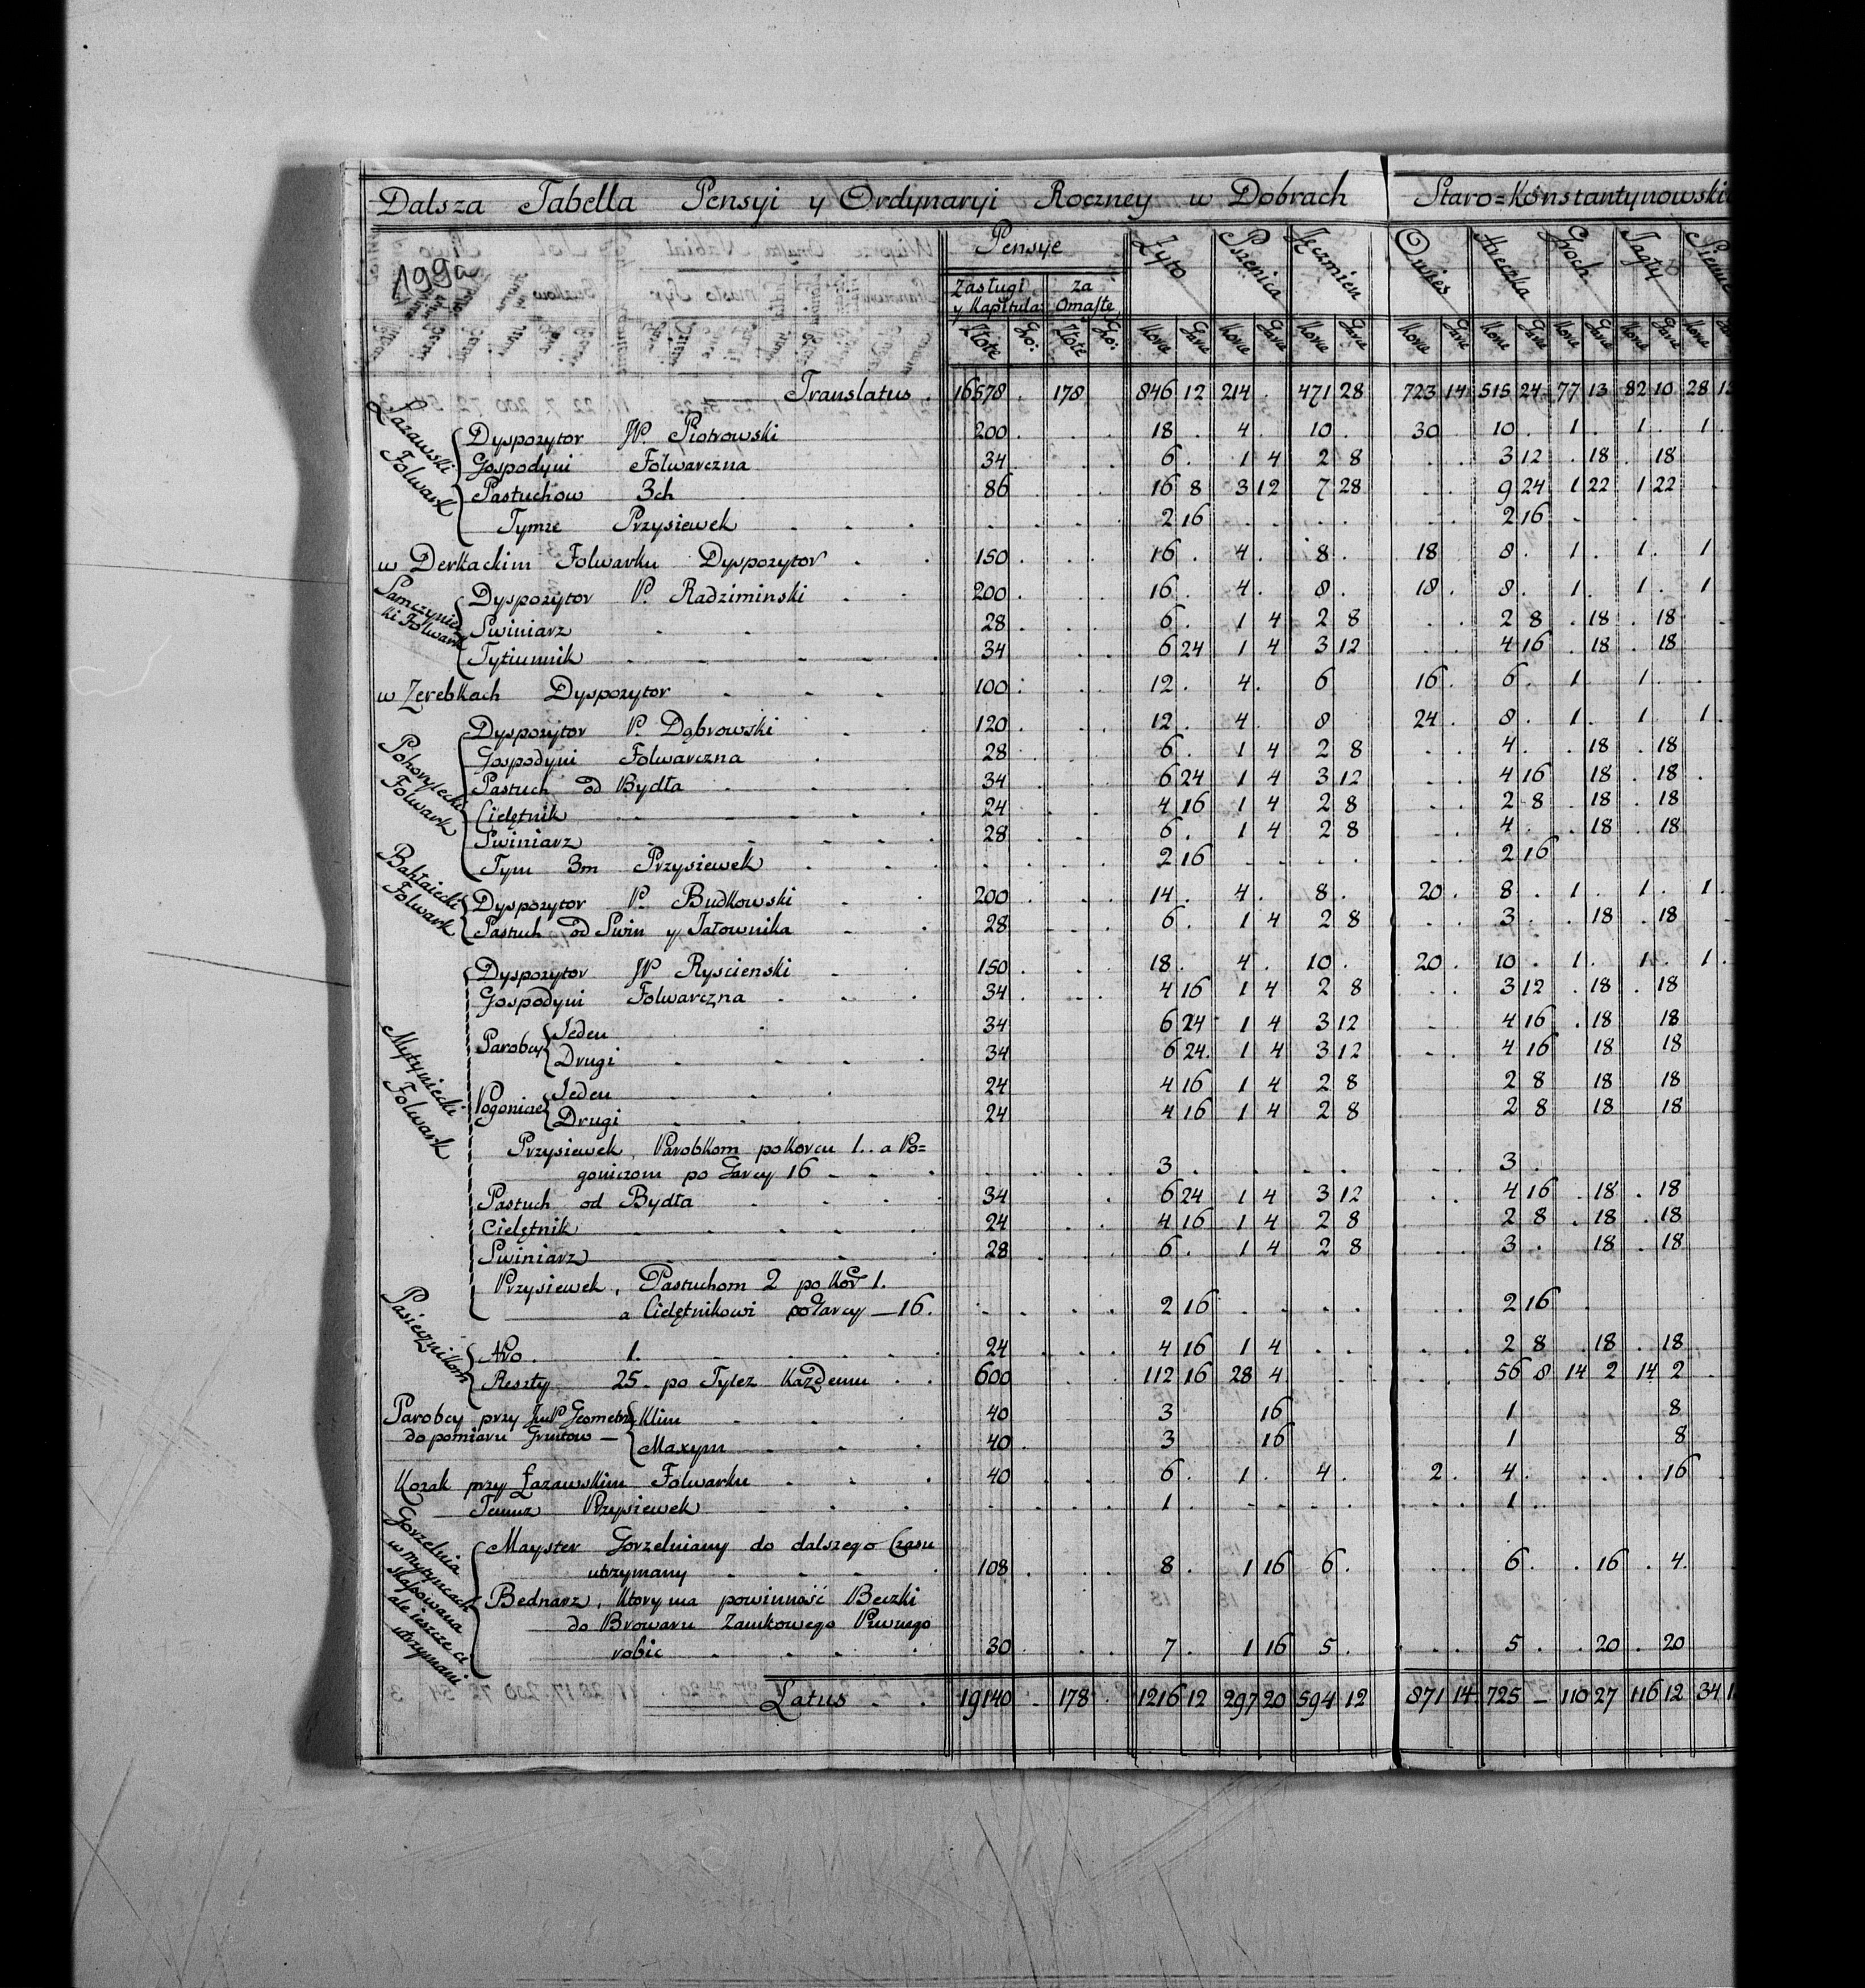 Dalsza Tabella Pensyi y Ordynaryi Roczney w Dobrach Staro=Konstantynowskic
199a
Pensye Żyto Pszenica Jęczmien Owies Hreczka Groch Jagły
Zasługi y Kapitula za Omastę
Złote Gro: Złote Gro: Korce Garce Korce Garce Korce Garce Korce Garce Korce Garce Korce Garce Korce Garce Korce
Translatus 16578 . 178 846 12 214 . 471 28 723 14 515 24 77 13 82 10 28 12
Łazawski Folwark
Dyspozytor JP. Piotrowski 200 . 18 . 4 . 10 . 30 10 . 1 . 1 . 1 .
Gospodyni Folwarczna 34 6 . 1 4 2 8 3 12 . 18 . 18
Pastuchow 3ch 86 16 8 3 12 7 28 9 24 1 22 1 22
Tymże Przysiewek 2 16 2 16
w Derkackim Folwarku Dyspozytor 150 . 16 . 4 . 8 . 18 8 . 1 . 1 . 1
Samczynicki Folwark
Dyspozytor P. Radziminski 200 . 16 . 4 . 8 . 18 . 8 . 1 . 1 . 1
Swiniarz 28 . 6 . 1 4 2 8 2 8 . 18 . 18
Tytiunnik 34 6 24 1 4 3 12 4 16 . 18 . 18
w Zerebkach Dyspozytor 100 . 12 . 4 . 6 16 . 6 . 1 1 .
Pohorylecki Folwark
Dyspozytor P. Dąbrowski 120 12 . 4 . 8 24 . 8 . 1 . 1 . 1 .
Gospodyni Folwarczna 28 6 . 1 4 2 8 4 . . 18 . 18
Pastuch od Bydła 34 6 24 1 4 3 12 4 16 18 . 18 .
Cielętnik 24 4 16 1 4 2 8 2 8 . 18 . 18
Swiniarz 28 6 . 1 4 2 8 4 . . 18 . 18
Tym 3m Przysiewek 2 16 2 16
Bahłaiecki Folwark
Dyspozytor P. Budkowski 200 14 . 4 . 8 . 20 . 8 . 1 . 1 . 1 .
Pastuch od Swin y Jałownika 28 6 . 1 4 2 8 3 . . 18 . 18
Mytyniecki Folwark
Dyspozytor JP Ryscienski 150 18 . 4 . 10 . 20 . 10 . 1 . 1 . 1 .
Gospodyni Folwarczna 34 4 16 1 4 2 8 3 12 . 18 . 18
Parobcy Jeden 34 6 24 1 4 3 12 4 16 . 18 18
Drugi 34 6 24 . 1 4 3 12 4 16 18 18
Pogonicze Jeden 24 4 16 1 4 2 8 2 8 18 18
Drugi 24 4 16 1 4 2 8 2 8 18 18
Przysiewek, Parobkom po Korcu 1.. a Po=
goniczom po Garcy 16 3 . 3 .
Pastuch od Bydła 34 6 24 1 4 3 12 4 16 . 18 . 18
Cielętnik 24 4 16 1 4 2 8 2 8 . 18 . 18
Swiniarz 28 6 . 1 4 2 8 3 . 18 . 18
Przysiewek, Pastuchom 2 po Kor 1.
a Cielętnikowi po Garcy — 16. 2 16 2 16
Pasiecznikom
Nro. 1. 24 4 16 1 4 2 8 . 18 . 18
Reszty 25 po Tylez Każdemu 600 112 16 28 4 56 8 14 2 14 2
Parobcy przy JmP Geometrze Klim 40 3 16 1 8
do pomiaru Gruntow — Maxym 40 3 16 1 8
Kozak przy Łazawskim Folwarku 40 6 . 1 . 4 . 2 . 4 . 16
Temuz Przysiewek 1 . 1 .
Gorzelnia w Mytyncach skassowana ale ieszcze ci utrzymani
Mayster Gorzelniany do dalszego Czasu
utrzymany 108 8 . 1 16 6 . 6 . . 16 . 4 .
Bednarz, Ktory ma powinność Beczki
do Browaru Zamkowego Piwnego
robic 30 7 . 1 16 5 . 5 . . 20 . 20
Latus 19140 178 1216 12 297 20 594 12 871 14 725 — 110 27 116 12 34 1